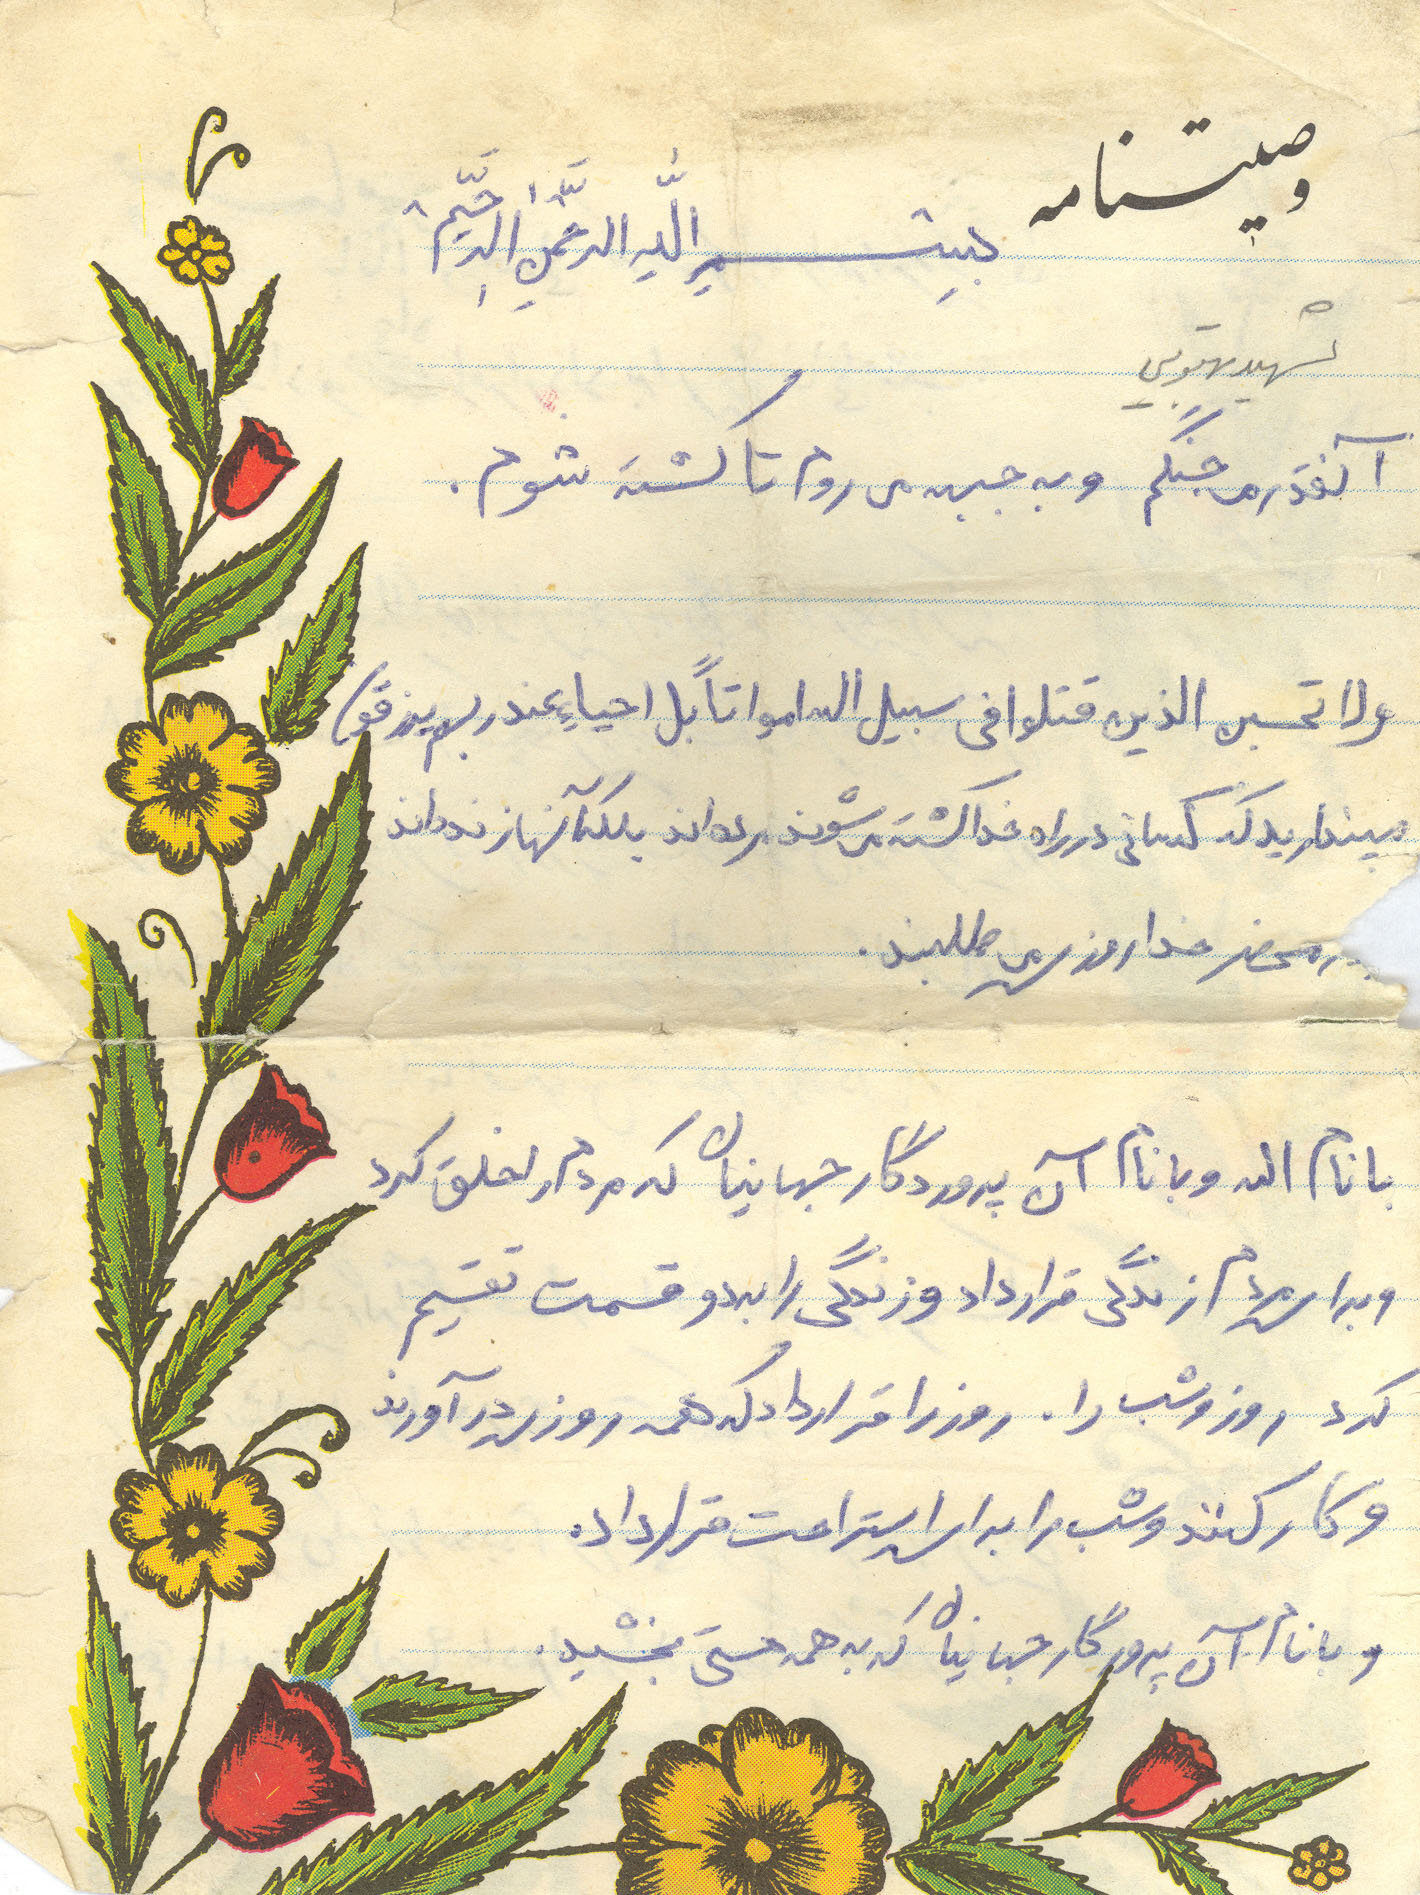 وصیتنامه
بِسْمِ اللّهِ الرَّحْمنِ الرَّحیمْ
شهید یعقوبی
آنقدر می جنگم و به جبهه می روم تا کشته شوم.
ولا تحسبن الذین قتلوا فی سبیل الله امواتاً بل احیاء عند ربهم یرزقون
مپندارید که کسانی در راه خدا کشته می شوند مرده اند بلکه آنها زنده اند
در محضر خدا روزی می طلبند.
با نام الله و با نام آن پروردگار جهانیان که مردم را خلق کرد
و برای مردم زندگی قرار داد و زندگی را به دو قسمت تقسیم
کرد روز و شب را. روز را قرار داد که همه روزی در آورند
و کار کنند و شب را برای استراحت قرار داد.
و با نام آن پرورگار جهانیان که به همه هستی بخشید.